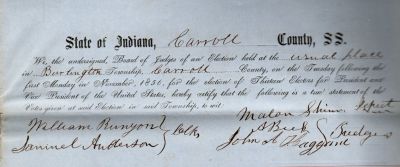 State of Indiana, Carroll County, SS.
We the undersigned, Board of Judges of an Election held at the usual place
in Burlington Township, Carroll County, on the Tuesday following the
first Monday in November, 1856, for the election of Thirteen Electors for President and
Vice President of the United States, hereby certify that the following is a true statement of the
Votes given at said Election in said Township, to wit.
William Runyon
Samuel Anderson
Clks
Mahlon Shinn
A Beck
John A
Judges